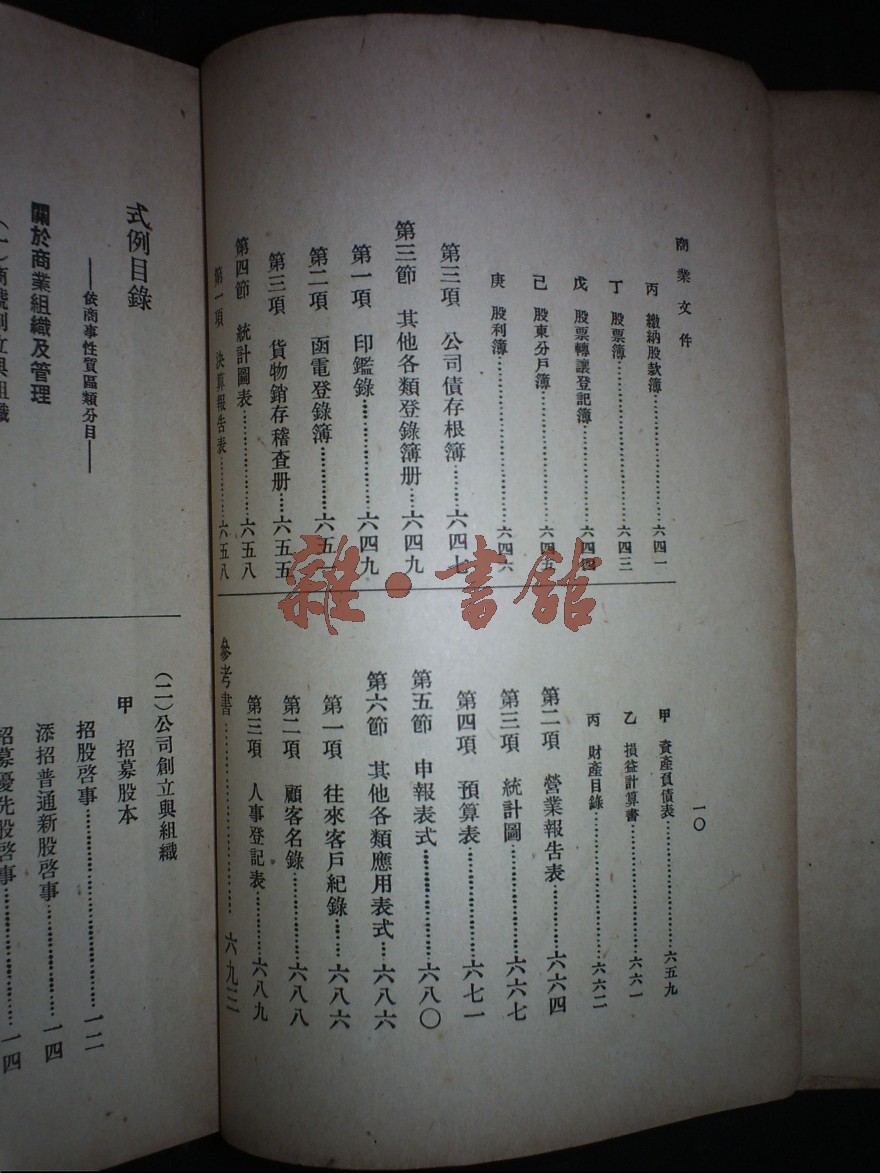 商業文件
丙 繳納股款簿……六四一
丁 股票簿……六四三
戊 股票轉讓登記簿……六四四
己 股東分戶簿……六四五
庚 股利簿……六四六
第三項 公司債存根簿……六四七
第三節 其他各類登錄簿册……六四九
第一項 印鑑錄……六四九
第二項 函電登錄簿……六五一
第三項 貨物銷存稽查册……六五五
第四節 統計圖表……六五八
第一項 決算報告表……六五八
一〇
甲 資產負債表……六五九
乙 損益計算書……六六一
丙 財產目錄……六六二
第二項 營業報告表……六六四
第三項 統計圖……六六七
第四項 預算表……六七一
第五節 申報表式……六八〇
第六節 其他各類應用表式……六八六
第一項 往來客戶紀錄……六八六
第二項 顧客名錄……六八八
第三項 人事登記表……六八九
參考書……六九三
式例目錄
——依商事性質區類分目——
關於商業組織及管理
(一)商號創立與組織
(二)公司創立與組織
甲 招募股本
招股啓事……一二
添招普通新股啓事……一四
招募優先股啓事……一四
雜·書館